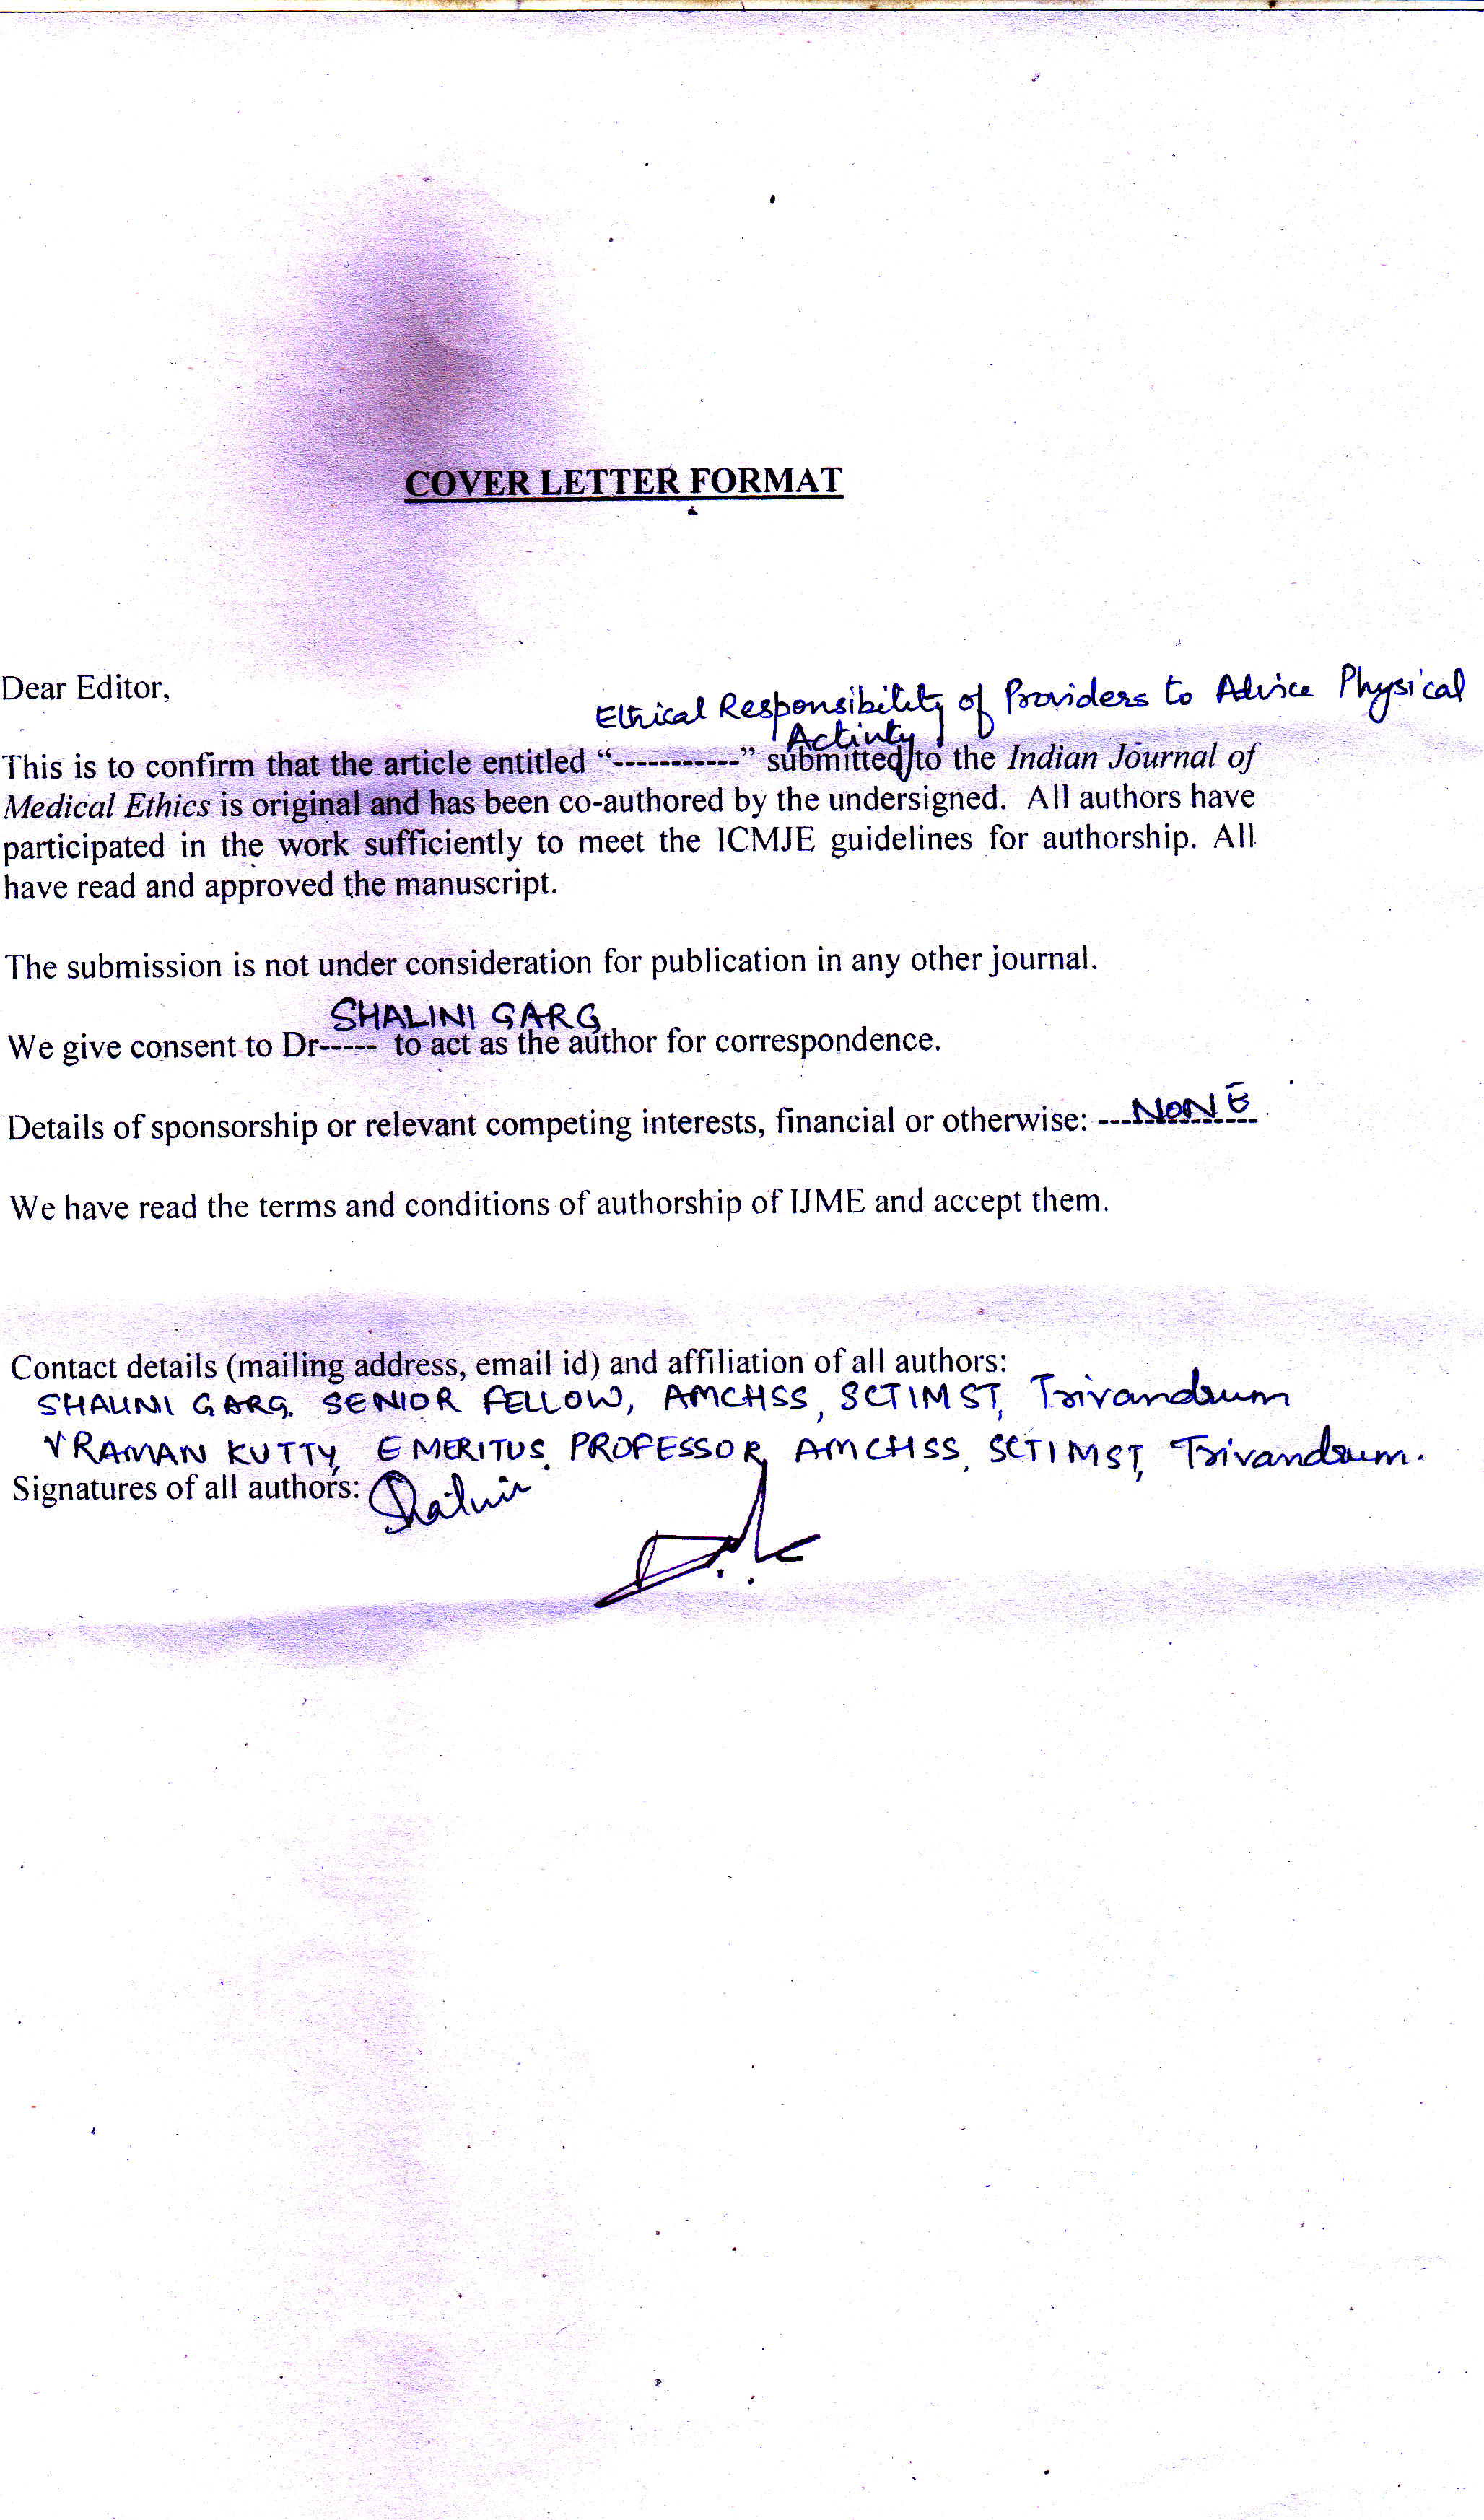 COVER LETTER FORMAT
Dear Editor,
Ethical Responsibility of Providers to Advice Physical
Activity
This is to confirm that the article entitled “-----------” submitted to the Indian Journal of
Medical Ethics is original and has been co-authored by the undersigned. All authors have
participated in the work sufficiently to meet the ICMJE guidelines for authorship. All
have read and approved the manuscript.
The submission is not under consideration for publication in any other journal.
SHALINI GARG
We give consent to Dr----- to act as the author for correspondence.
Details of sponsorship or relevant competing interests, financial or otherwise: ---NONE---
We have read the terms and conditions of authorship of IJME and accept them.
Contact details (mailing address, email id) and affiliation of all authors:
SHALINI GARG. SENIOR FELLOW, AMCHSS, SCTIMST, Trivandrum
V RAMAN KUTTY, EMERITUS PROFESSOR, AMCHSS, SCTIMST, Trivandrum.
Signatures of all authors: Shalini